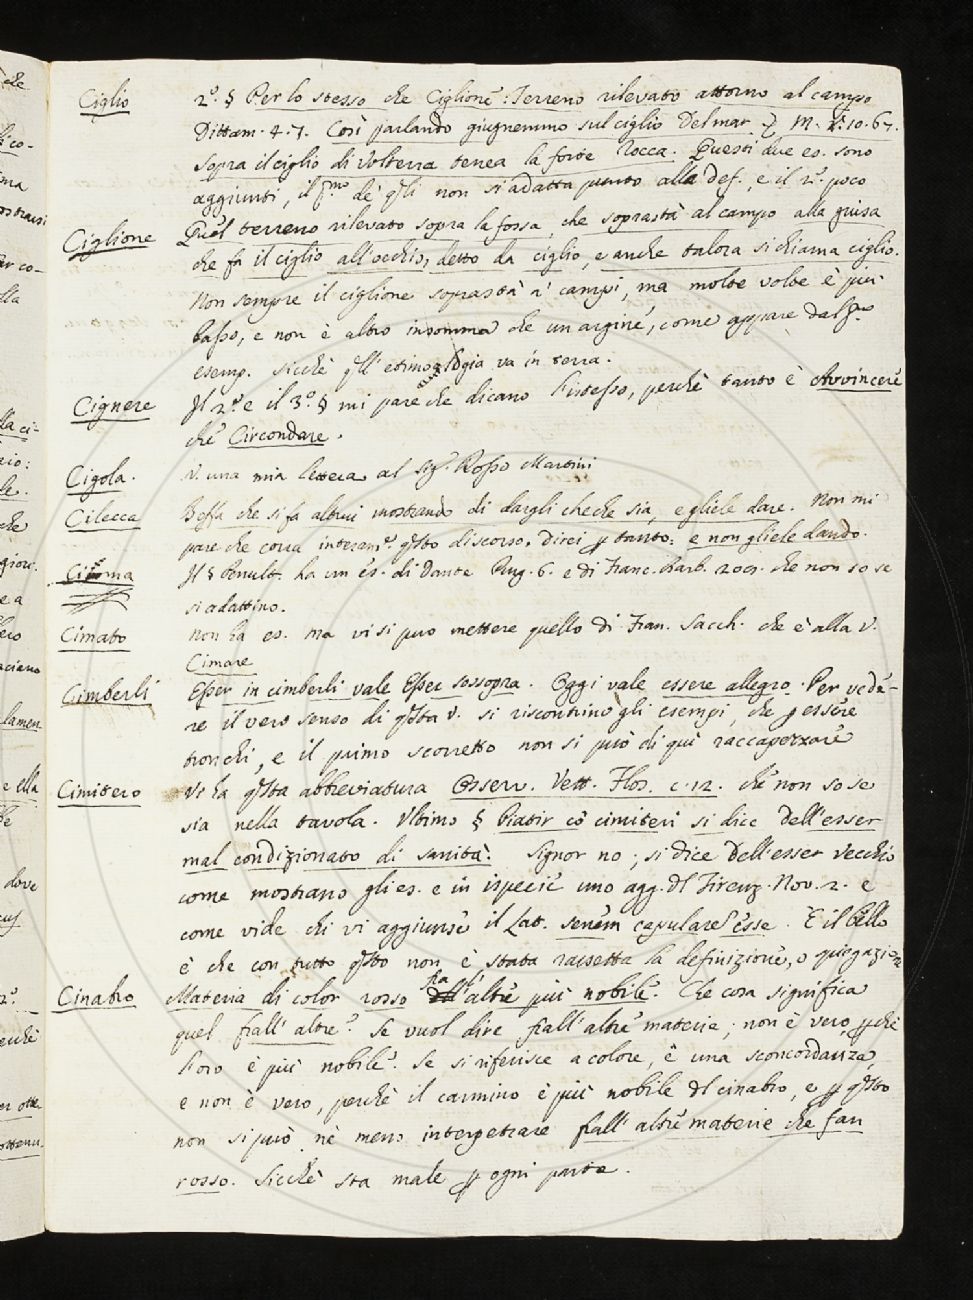 Ciglio 2.° § Per lo stesso che Ciglione: Terreno rilevato attorno al campo
Dittam. 4. 7. Così parlando giugnemmo sul ciglio Del mar. M. 10. 67.
sopra il ciglio di Volterra tenea la forte Rocca. Questi due es. sono
aggiunti, il p.mo de' qli non si adatta punto alla def., e il 2.° poco
Ciglione Quel terreno rilevato sopra la fossa, che soprastà al campo alla guisa
che fa il ciglio all'occhio, detto da ciglio, e anche talora si chiama ciglio.
Non sempre il ciglione soprastà a' campi, ma molte volte è più
basso, e non è altro insomma che un argine, come appare dal p.mo
esemp. Sicchè qll' etimologia va in terra.
Cignere Il 2.° e il 3.° § mi pare che dicano l'istesso, perchè tanto è Avvincere
che Circondare.
Cigola. V. una mia lettera al Sig.r Rosso Martini
Cilecca Beffa che si fa altrui mostrando di dargli checchè sia, e gliele dare. Non mi
pare che corra interam.e qsto discorso. Direi p tanto: e non gliele dando.
Cima Il § Penult. ha un es. di Dante Purg. 6. e di Franc. Barb. 209. che non so se
si adattino.
Cimato non ha es. ma vi si può mettere quello di Fran. Sacch. che è alla V.
Cimare
Cimberli Esser in cimberli vale Esser sossopra. Oggi vale essere allegro. Per vede-
re il vero senso di qsta V. si riscontrino gli esempi, che p essere
tronchi, e il primo scorretto non si può di qui raccapezzare
Cimitero Vi ha qsta abbreviatura Osserv. Vett. Flos. c. 12. che non so se
sia nella tavola. Ultimo § Piatir co' cimiteri si dice dell'esser
mal condizionato di sanità. Signor no; si dice Dell'esser vecchio
come mostrano gli es. e in ispecie uno agg. dl Firenz. Nov. 2. e
come vide chi vi aggiunse il Lat. senem capularem esse. E il bello
è che con tutto qsto non è stata rassetta la definizione, o spiegazione
Cinabro Materia di color rosso fra l'altre più nobile. Che cosa significa
quel frall' altre? Se vuol dire frall'altre materie, non è vero, pchè
l'oro è più nobile. Se si riferisce a colore, è una sconcordanza,
e non è vero, perchè il carmino è più nobile dl cinabro, e p qsto
non si può nè meno interpetrare frall' altre materie che fan
rosso. Sicchè sta male p ogni parte.